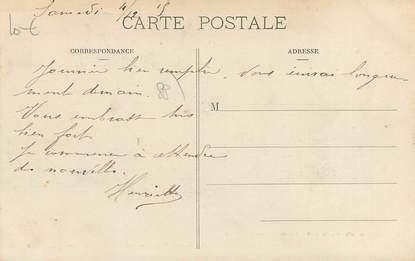 Samedi
CARTE POSTALE
CORRESPONDANCE
ADRESSE
Journée bien remplie. Vous écrirai longue
ment demain.
M
Vous embrasse très
bien fort
Je commence à attendre
des nouvelles.
Henriette